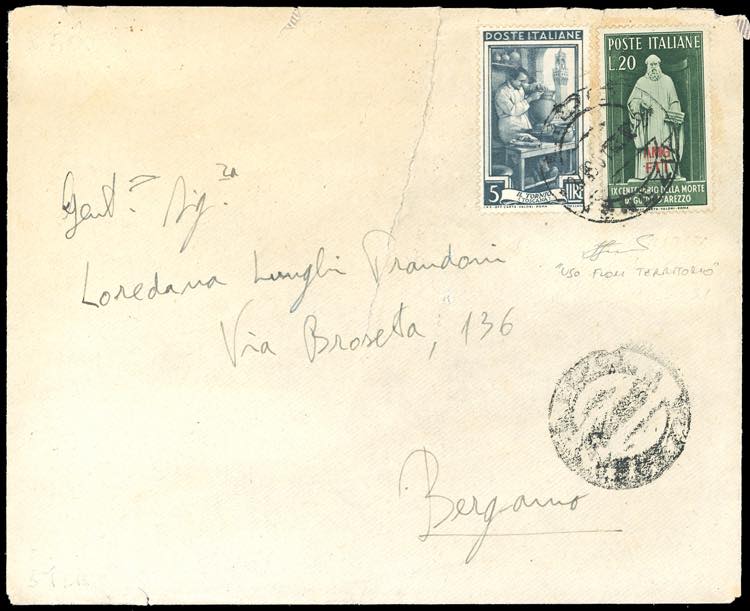 POSTE ITALIANE
5 LIRE
IL TORNIO
POSTE ITALIANE
L.20
AMG
F.T.T.
IX CENTENARIO DELLA MORTE
DI GUIDO D'AREZZO
Gent. Sig.ra
Loredana Lunghi Prandoni
Via Broseta, 136
Bergamo
"USO FUORI TERRITORIO"